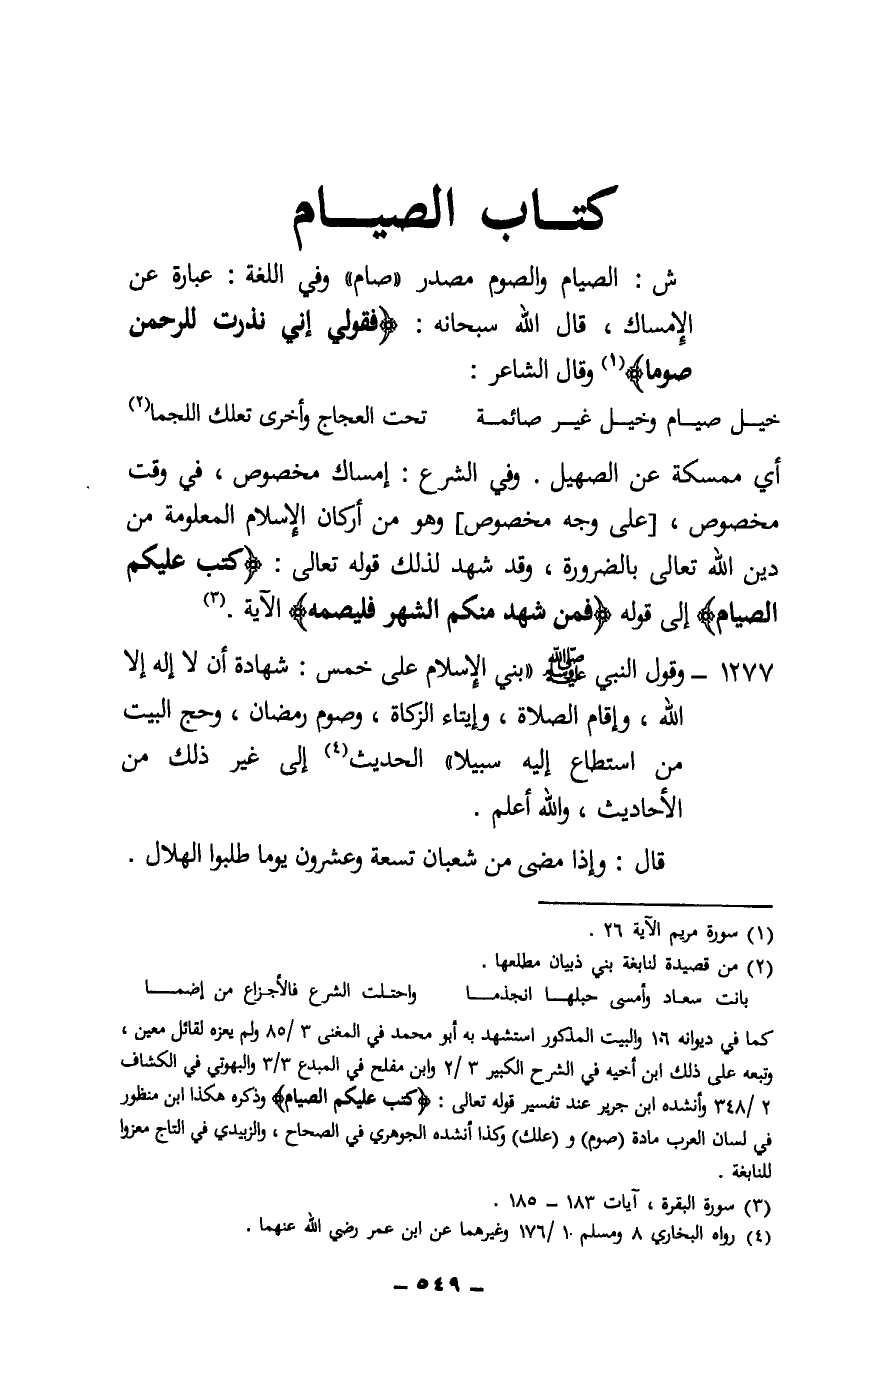 كتاب الصيام
ش : الصيام والصوم مصدر «صام» وفي اللغة : عبارة عن
الإمساك ، قال الله سبحانه : ﴿فقولي إني نذرت للرحمن
صوما﴾(١) وقال الشاعر :
خيل صيام وخيل غير صائمة تحت العجاج وأخرى تعلك اللجما(٢)
أي ممسكة عن الصهيل . وفي الشرع : إمساك مخصوص ، في وقت
مخصوص ، [على وجه مخصوص] وهو من أركان الإسلام المعلومة من
دين الله تعالى بالضرورة ، وقد شهد لذلك قوله تعالى : ﴿كتب عليكم
الصيام﴾ إلى قوله ﴿فمن شهد منكم الشهر فليصمه﴾ الآية .(٣)
١٢٧٧ – وقول النبي ﷺ «بني الإسلام على خمس : شهادة أن لا إله إلا
الله ، وإقام الصلاة ، وإيتاء الزكاة ، وصوم رمضان ، وحج البيت
من استطاع إليه سبيلا» الحديث(٤) إلى غير ذلك من
الأحاديث ، والله أعلم .
قال : وإذا مضى من شعبان تسعة وعشرون يوما طلبوا الهلال .
(١) سورة مريم الآية ٢٦ .
(٢) من قصيدة لنابغة بني ذبيان مطلعها .
بانت سعاد وأمسى حبلها انجذما واحتلت الشرع فالأجزاع من إضما
كما في ديوانه ١٦ والبيت المذكور استشهد به أبو محمد في المغنى ٣ /٨٥ ولم يعزه لقائل معين ،
وتبعه على ذلك ابن أخيه في الشرح الكبير ٣ /٢ وابن مفلح في المبدع ٣/٣ والبهوتي في الكشاف
٢ /٣٤٨ وأنشده ابن جرير عند تفسير قوله تعالى : ﴿كتب عليكم الصيام﴾ وذكره هكذا ابن منظور
في لسان العرب مادة (صوم) و (علك) وكذا أنشده الجوهري في الصحاح ، والزبيدي في التاج معزوا
للنابغة .
(٣) سورة البقرة ، آيات ١٨٣ – ١٨٥ .
(٤) رواه البخاري ٨ ومسلم ١٠ /١٧٦ وغيرهما عن ابن عمر رضي الله عنهما .
– ٥٤٩ –